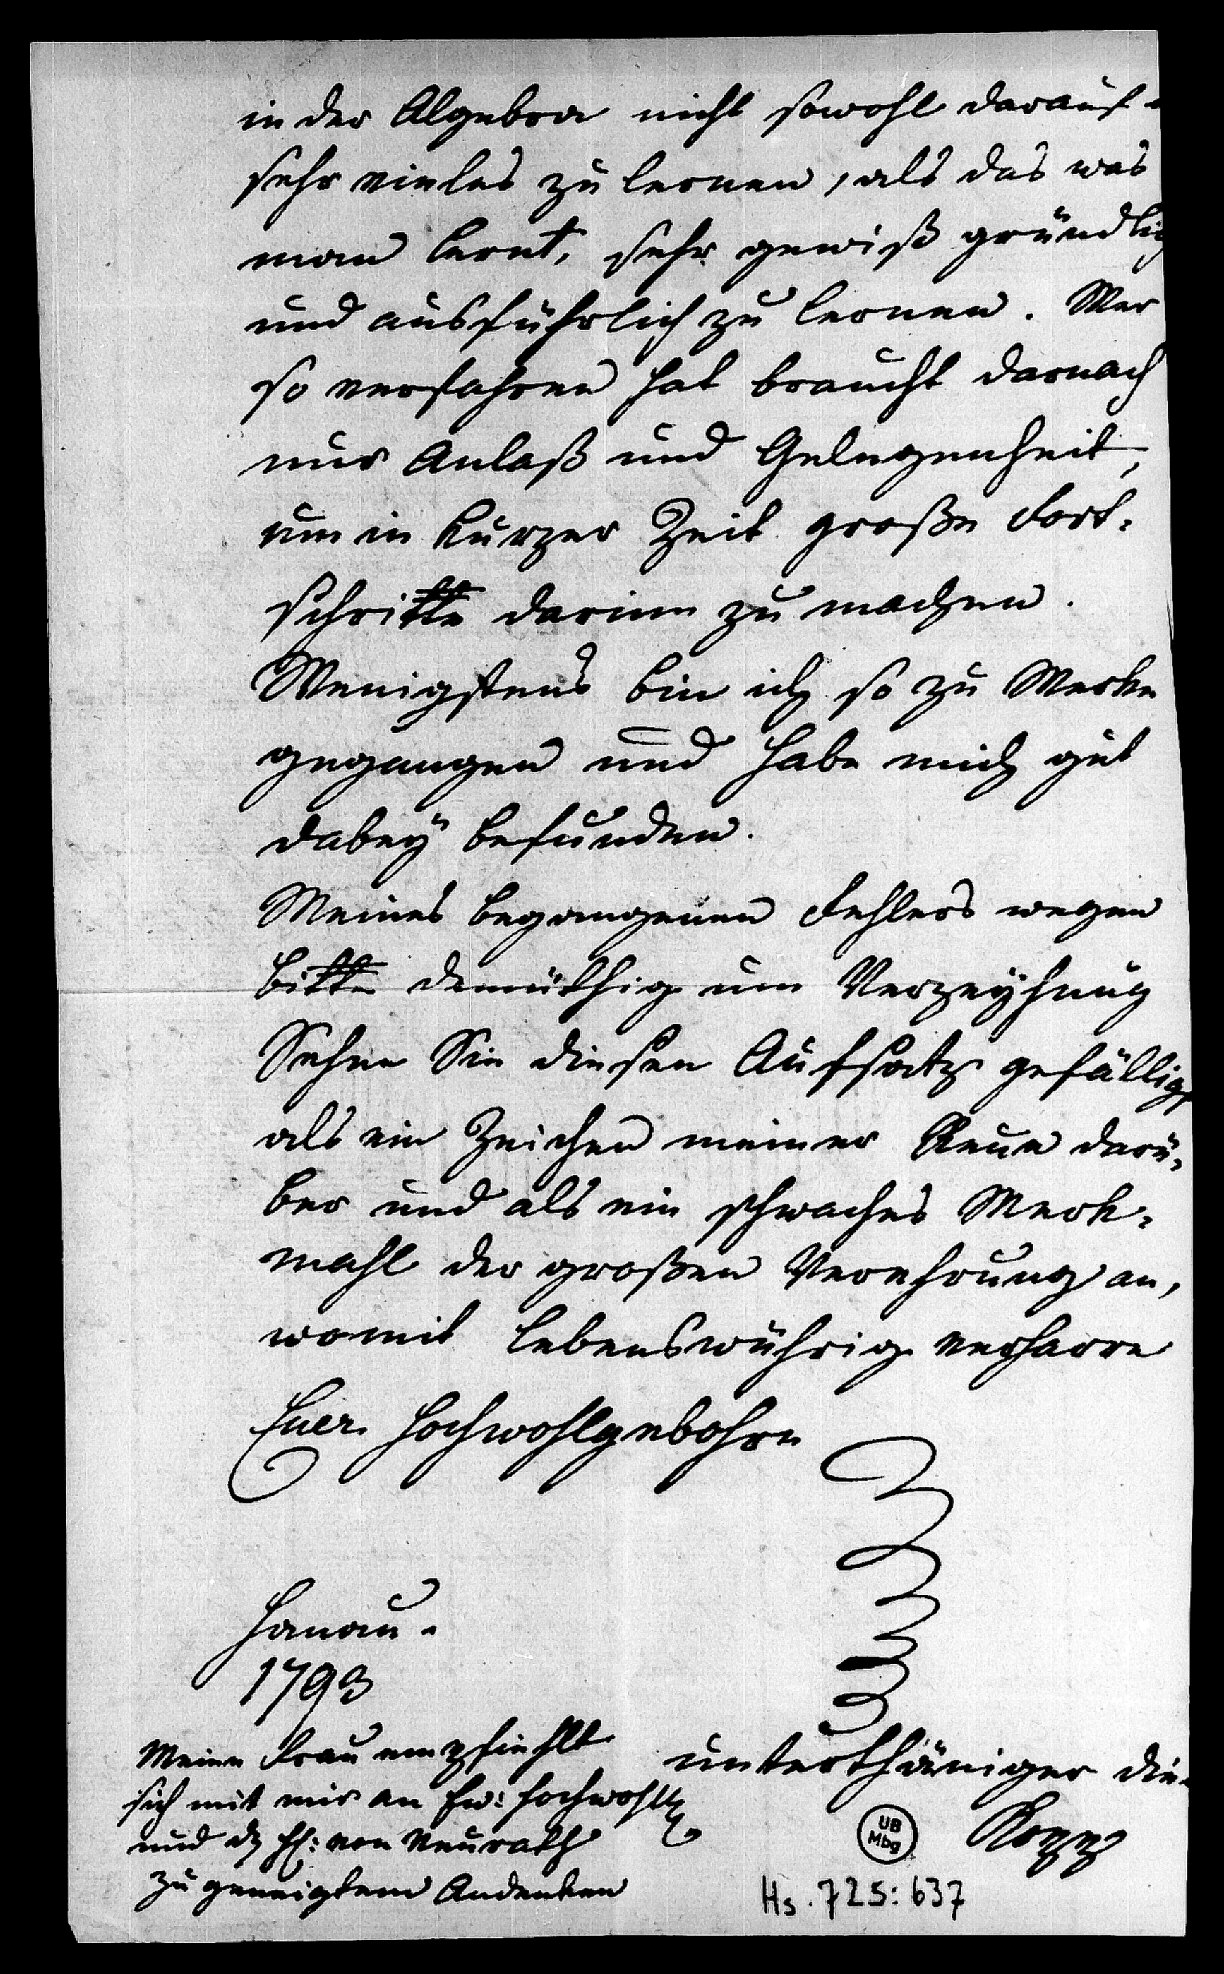 in der Algebra nicht sowohl darauf
sehr vieles zu lernen, als das was
man lernt, sehr gewiß gründlich
und ausführlich zu lernen. Wer
so verfahren hat braucht darnach
nur Anlaß und Gelegenheit,
um in kurzer Zeit große Fort-
schritte darinn zu machen.
Wenigstens bin ich so zu Werke
gegangen und habe mich gut
dabey befunden.
Meines begangenen Fehlers wegen
bitte demüthig um Verzeyhung
Sehen Sie diesen Aufsatz gefälligst
als ein Zeichen meiner Reue darü-
ber und als ein schwaches Merk-
mahl der großen Verehrung an,
womit lebenswührig verharre
Euer Hochwohlgebohrn
Hanau.
1793
unterthäniger die
Kopp
Meine Frau empfiehlt
sich mit mir an Ew: Hochwohl
und H: von Neurath
zu geneigtem Andenken
UB
Mbg
Hs. 725:637